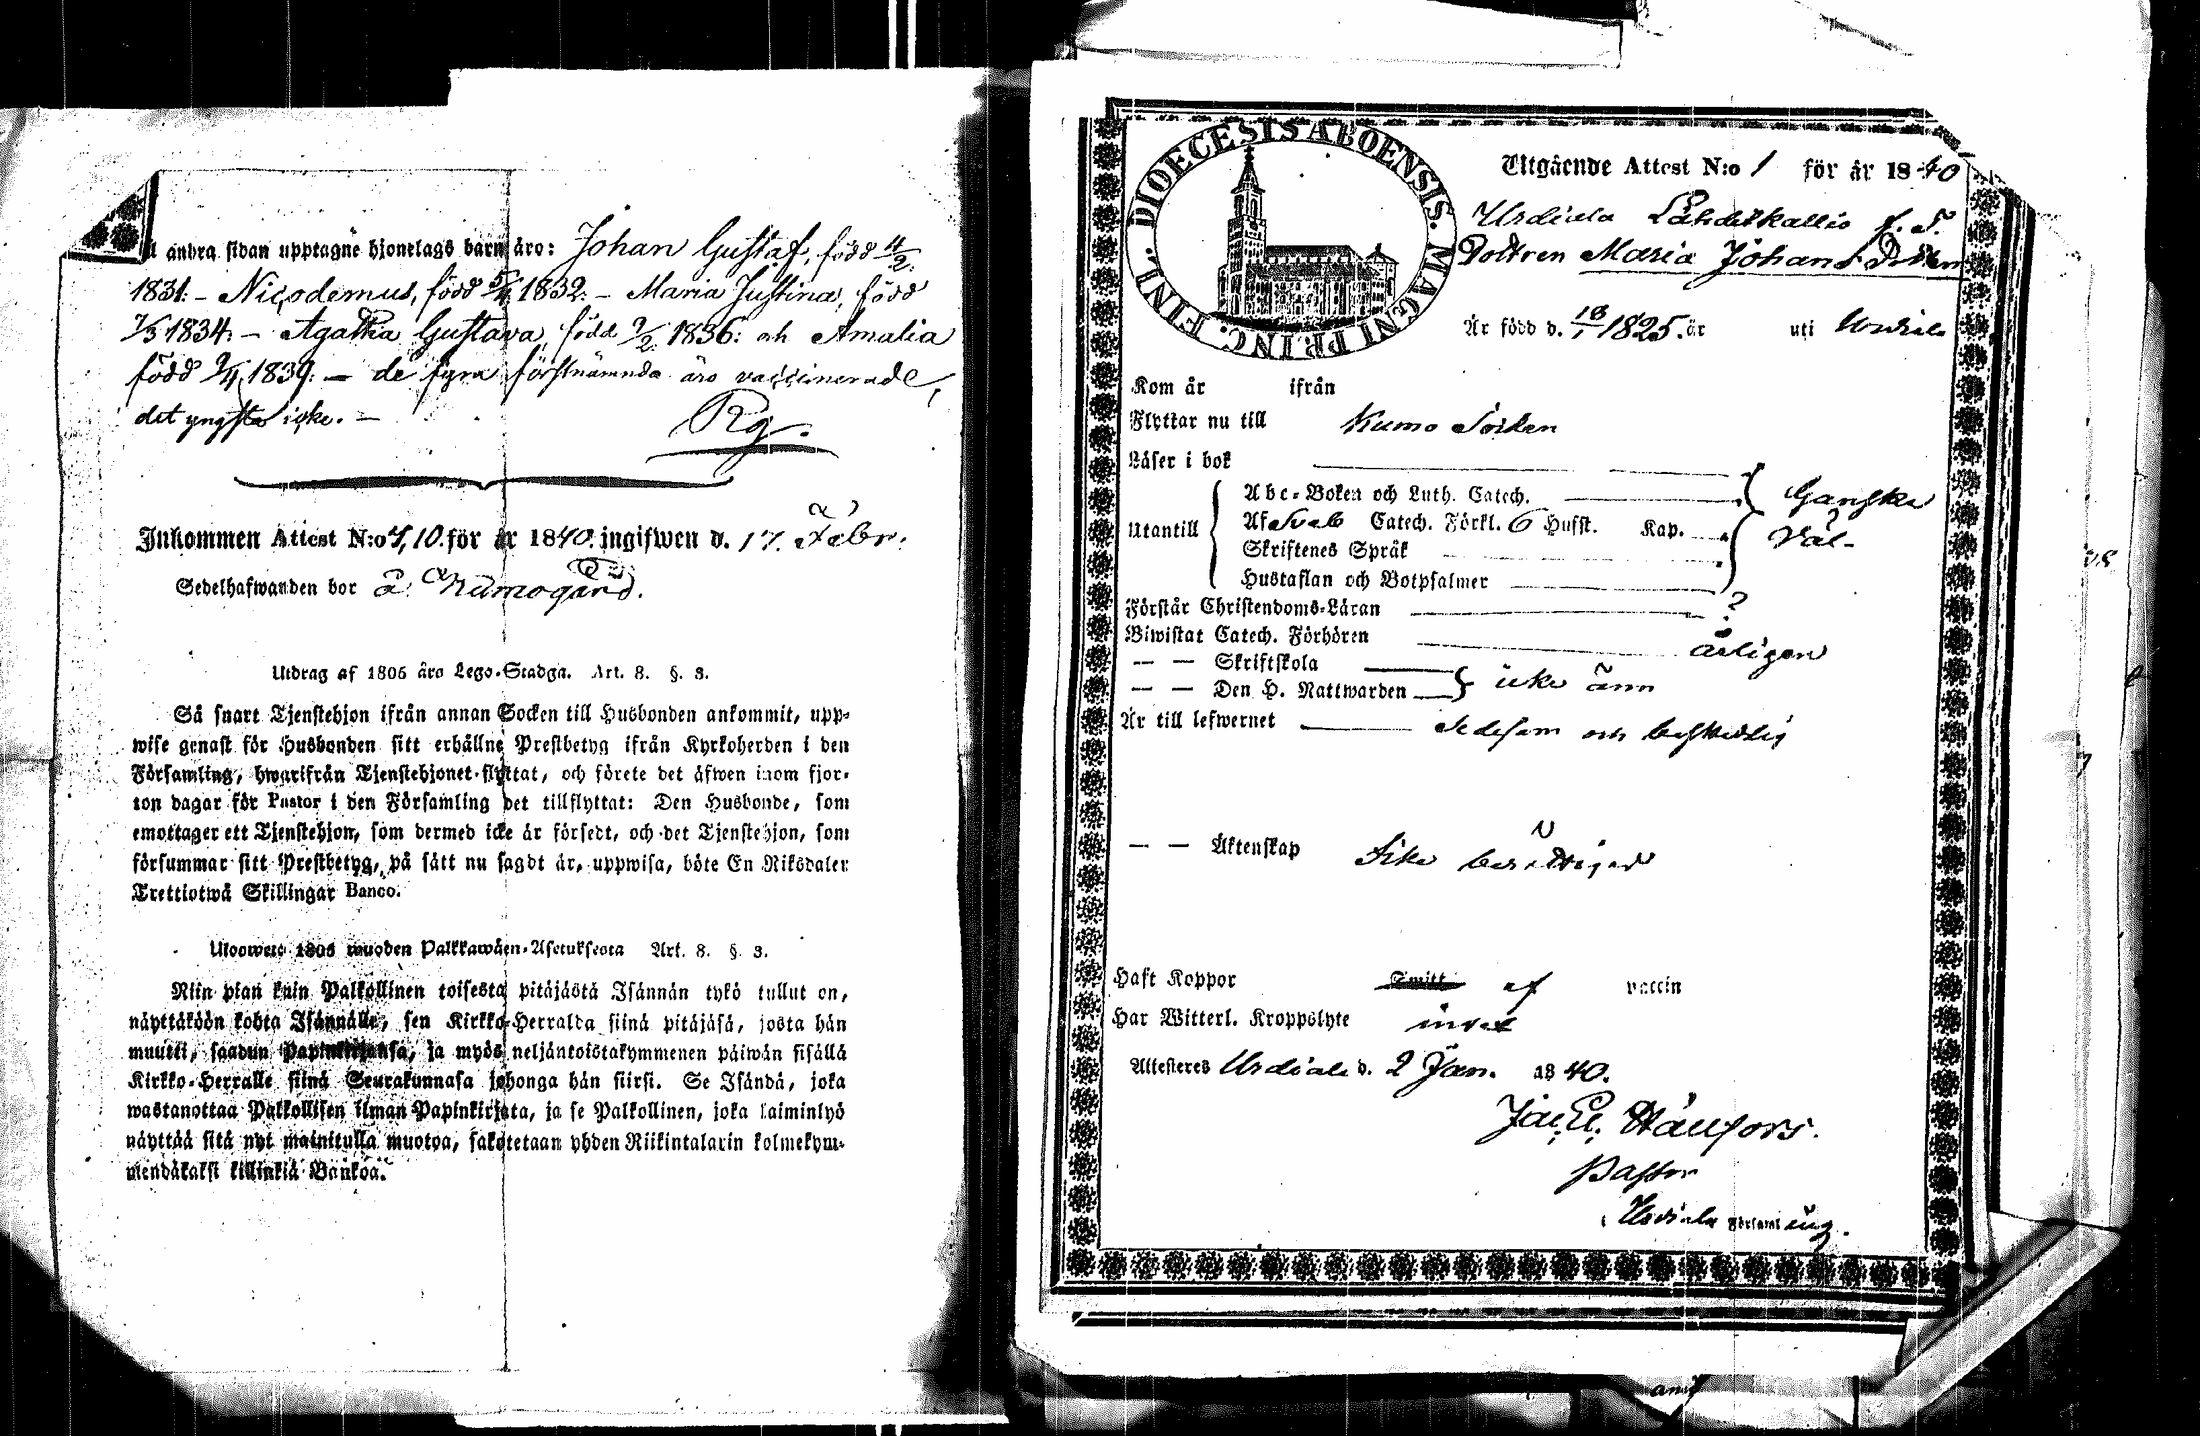 å andra sidan upptagne hjonelags barn äro: Johan Gustaf, född 4/2
1831. – Nicodemus, född 5/4 1832. – Maria Justina, född
7/3 1834. – Agatha Gustava, född 9/2 1836: och Amalia
född 9/4 1839. – de fyra förstnämnda äro vaccinerade,
det yngsta icke. –
Rg.
Inkommen Attest N:o 4,10. för år 1840. ingifwen d. 17. Febr.
Sedelhafwanden bor å Kumogård.
Utdrag af 1805 års Lego-Stadga. Art. 8. §. 3.
Så snart Tjenstehjon ifrån annan Socken till Husbonden ankommit, upp-
wise genast för Husbonden sitt erhållne Prestbetyg ifrån Kyrkoherden i den
Församling, hwarifrån Tjenstehjonet flyttat, och förete det äfwen inom fjor-
ton dagar för Pastor i den Församling det tillflyttat: Den Husbonde, som
emottager ett Tjenstehjon, som dermed icke är försedt, och det Tjenstehjon, som
försummar sitt Prestbetyg, på sätt nu sagdt är, uppwisa, böte En Riksdaler
Trettiotwå Skillingar Banco.
Uloosweto 1805 wuoden Palkkawäen-Asetuksesta Art. 8. §. 3.
Niin pian kuin Palkollinen toisesta pitäjästä Isännän tykö tullut on,
näyttäköön kohta Isännälle, sen Kirkko-Herralda siinä pitäjäsä, josta hän
muutti, saadun Papinkirjansa, ja myös neljäntoistakymmenen päiwän sisällä
Kirkko-Herralle siinä Seurakunnasa johonga hän siirsi. Se Isändä, joka
wastanottaa Palkollisen ilman Papinkirjata, ja se Palkollinen, joka laiminlyö
näyttää sitä nyt mainitulla muotoa, sakotetaan yhden Riikintalarin kolmekym-
mendäkaksi killinkiä Bankoa.
DIOECESIS ABOENSIS. MAGNI PRINC. FINL.
Utgående Attest N:o 1 för år 1840
Urdiala Lähdekallio f. T.
Dottren Maria Johans Dotter
Är född d. 18/1 1825. är uti Urdiala
Kom år ifrån
Flyttar nu till Kumo Socken
Läser i bok
Abc-Boken och Luth. Catech. Ganska
Utantill Af Sveb Catech. Förkl. 6 Husst. Kap. väl
Skriftenes Språk
Hustaflan och Botpsalmer
Förstår Christendoms-Läran ?
Biwistat Catech. Förhören årligen
— — Skriftskola
— — Den H. Nattwarden icke änn
Är till lefwernet sedesam och beskedlig
— — Äktenskap Icke berättigad
Haft Koppor af vaccin
Har Witterl. Kroppslyte intet
Attesteres Urdiala d. 2 Jan. 1840.
Pastor
i Urdiala Församling.